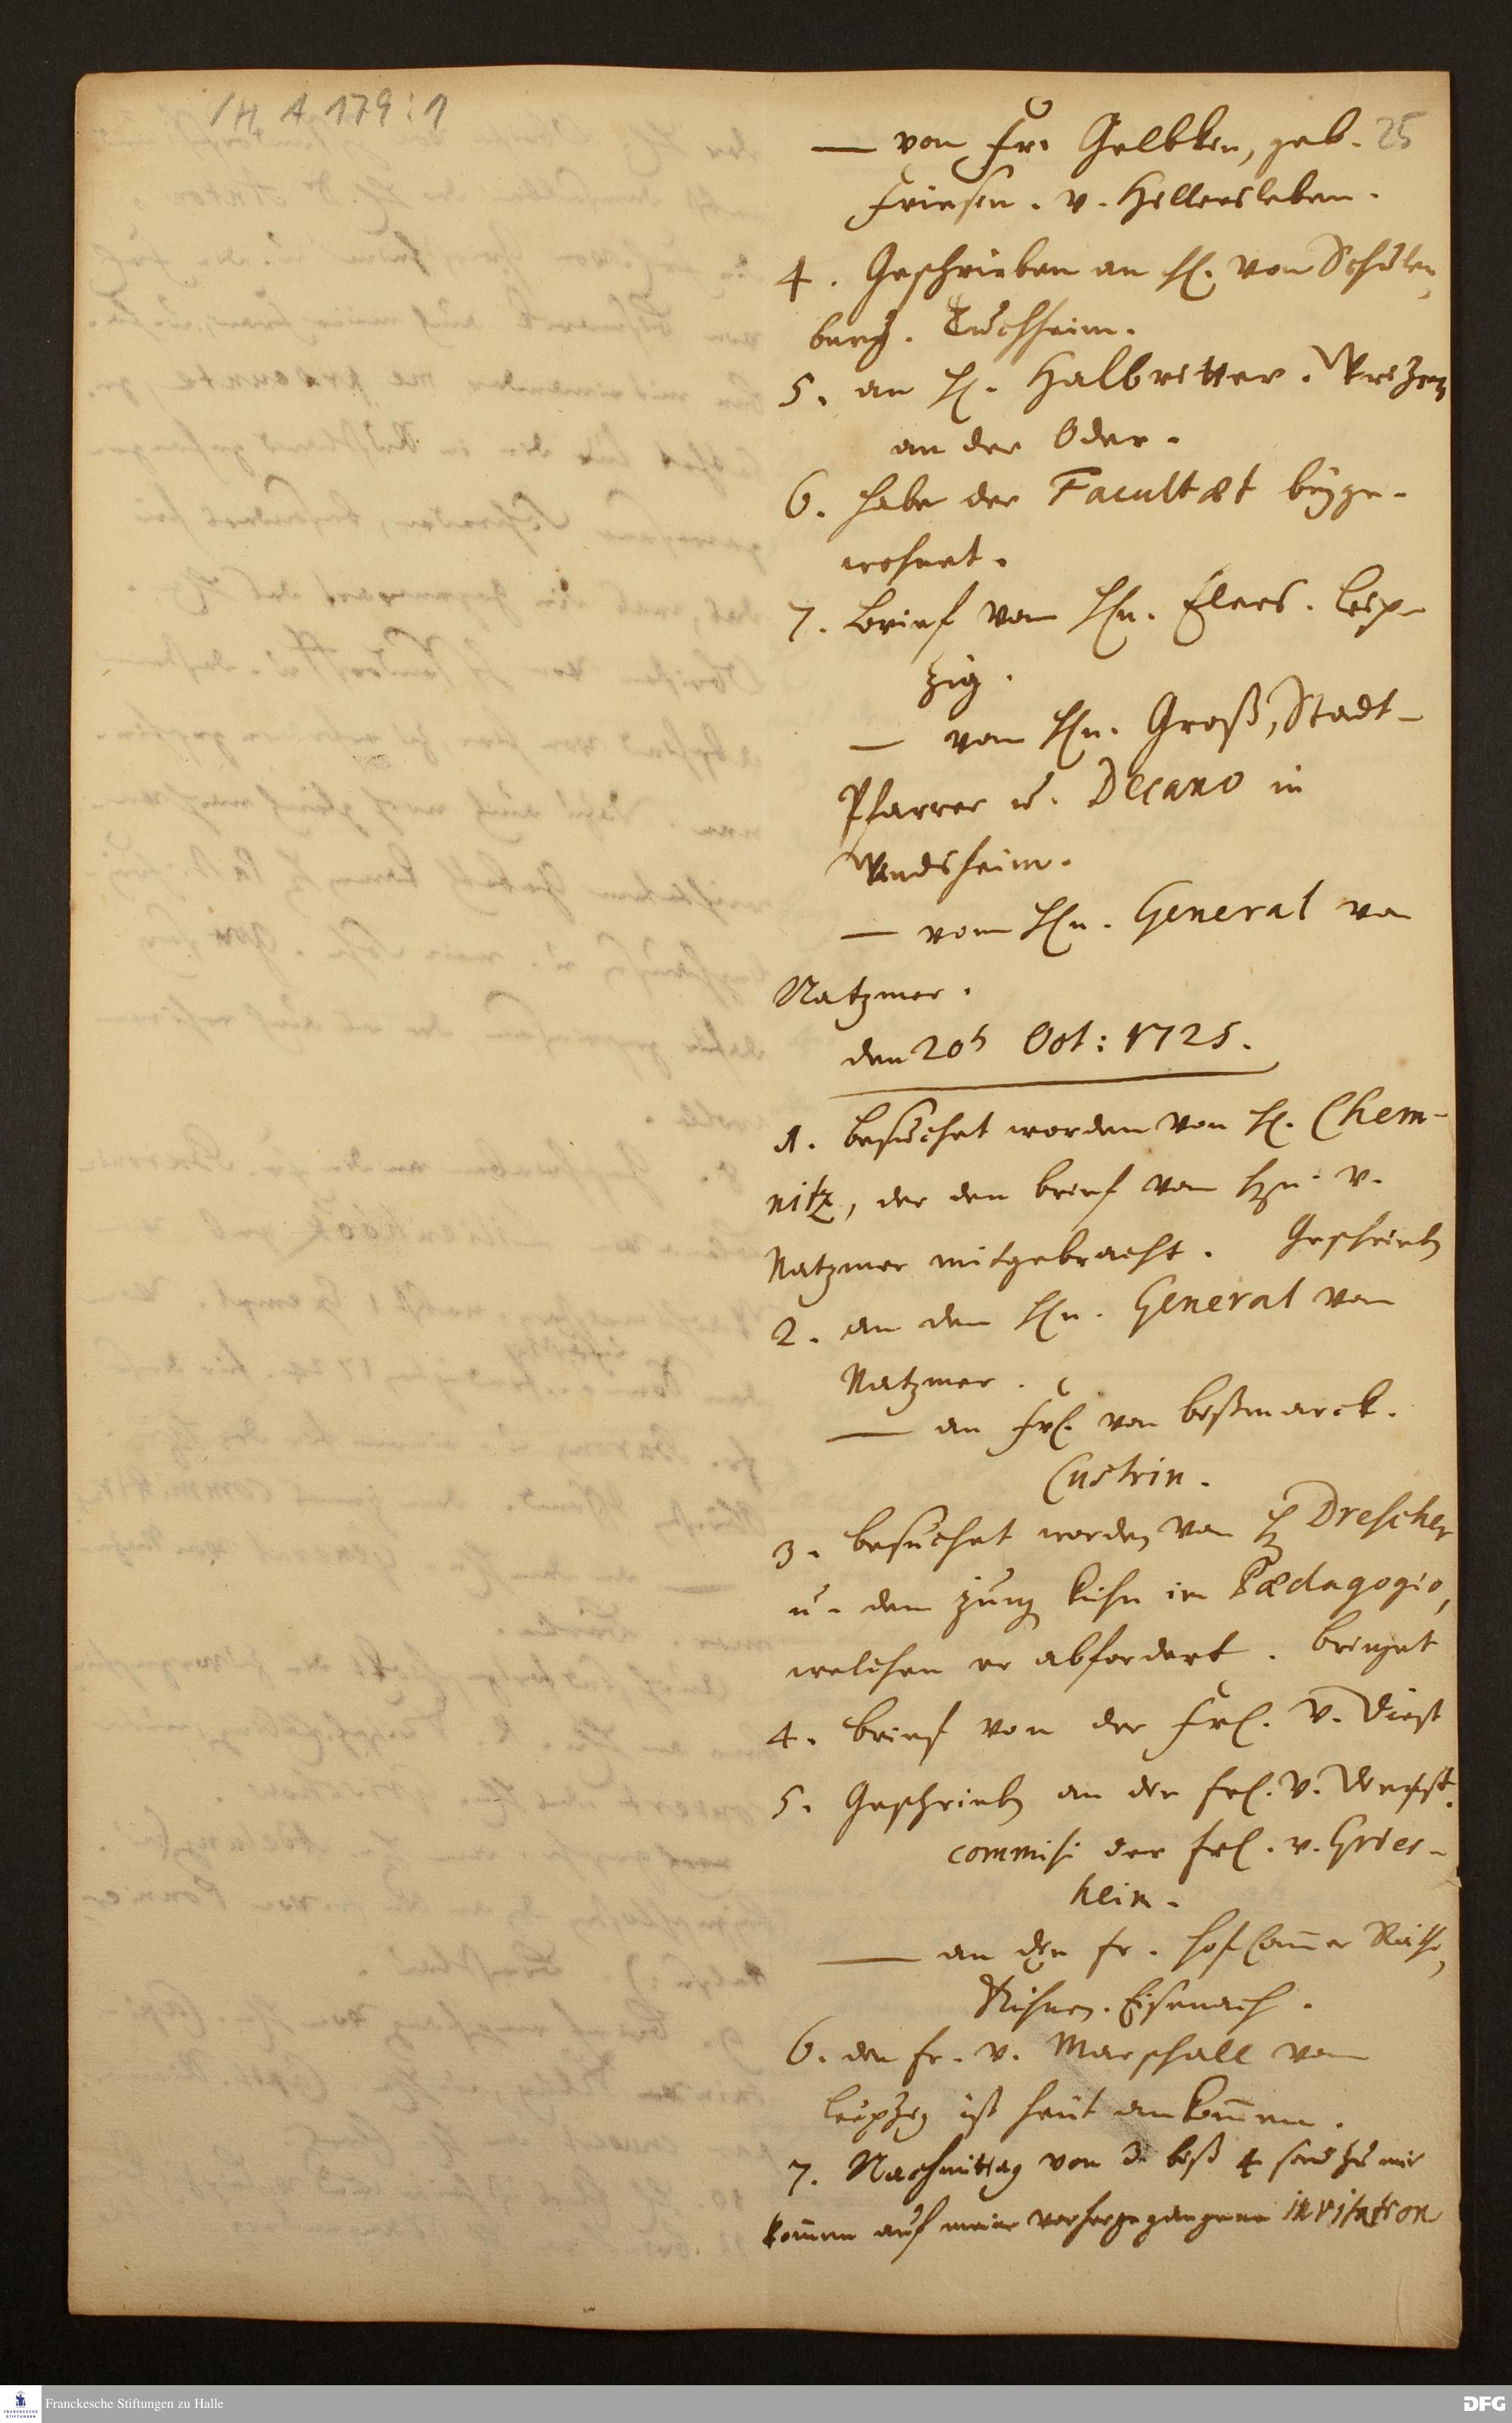 /H A 179:1
25
— von Fr. Gelbken, geb.
Friesen. v. Hillersleben.
4. Geschrieben an H. von Schulen,
burg. Tuchheim.
5. an H. Halbritter. Wrizen
an der Oder.
6. habe der Facultæt beyge-
wohnet.
7. Brief von Hn. Elers. Leip-
zig.
— von Hn. Groß, Stadt-
Pfarrer u. Decano in
Windsheim.
— vom Hn. General von
Natzmer.
den 20t Oct: 1725.
1. besuchet worden von H. Chem-
nitz, der den brief vom Hn. v.
Natzmer mitgebracht. Geschrieben
2. an den Hn. General von
Natzmer.
— an Frl. von Bißmarck.
Custrin.
3. besuchet worden von H Drescher
u. dem jung Kühn im Pædagogio,
welchen er abfordert. bringet
4. brief von der Frl. v. Diest
5. Geschrieben an die Frl. v.
commisi der Frl. v. Gries-
heim.
— an die Fr. Hof Cammer Räthin,
Eisenach.
6. die Fr. v. Marschall von
Leipzig ist heut ankommen.
7. Nachmittag von 3 biß 4 sind zu mir
kommen auf meine vorhergegangene invitation
Franckesche Stiftungen zu Halle
DFG